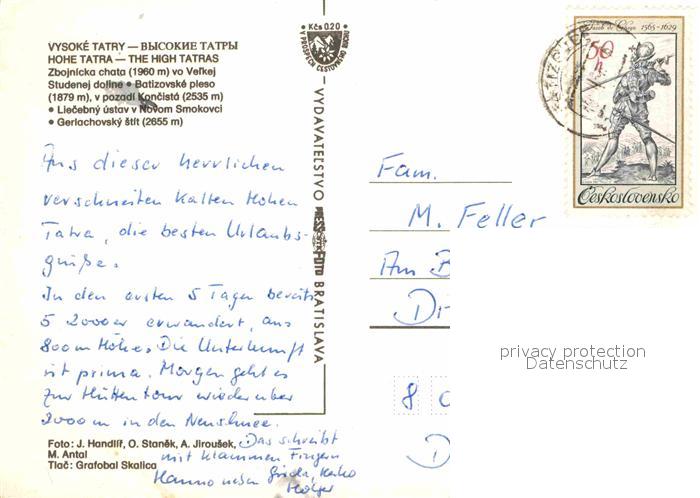 VYSOKÉ TATRY — ВЫСОКИЕ ТАТРЫ
HOHE TATRA — THE HIGH TATRAS
Zbojnícka chata (1960 m) vo Veľkej
Studenej doline • Batizovské pleso
(1879 m), v pozadí Končistá (2535 m)
• Liečebný ústav v Novom Smokovci
• Gerlachovský štít (2655 m)
Kčs 0,20
V PROSPECH CESTOVNÉHO RUCHU
VYDAVATEĽSTVO
BRATISLAVA
Jacob de Gheyn 1565-1629
50 h
Československo
Aus dieser herrlichen
verschneiten kalten Hohen
Tatra, die besten Urlaubs-
grüße.
In den ersten 5 Tagen bereits
5 2000er erwandert, aus
800m Höhe. Die Unterkunft
ist prima. Morgen geht es
zur Hüttentour wieder über
2000m in den Neuschnee.
Das schreibt
mit klammen Fingern
Hanno nebst
Holger
Fam.
M. Feller
Am B
D
8
D
privacy protection
Datenschutz
Foto: J. Handlíř, O. Staněk, A. Jiroušek,
M. Antal
Tlač: Grafobal Skalica